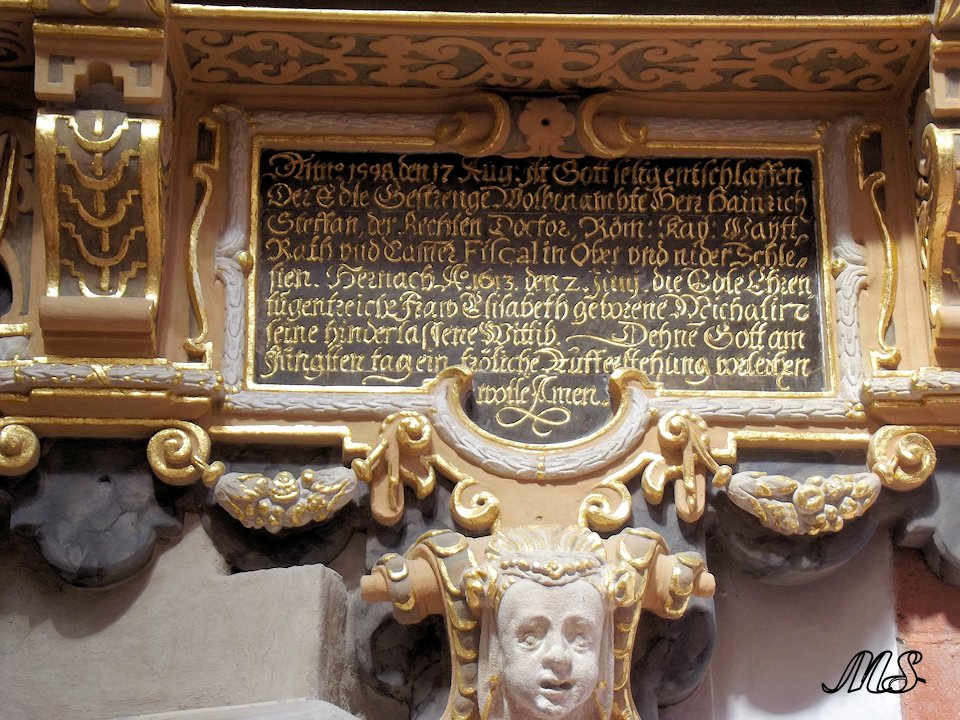 Anno 1598 den 17 Aug: Ist Gott selig entschlaffen
Der Edle Gestrenge Wolbenambte Herr Hainrich
Steffan, der Rechten Doctor, Röm: Kay: Mayst:
Rath und Camer Fiscal in Ober und nider Schle-
sien. Hernach Ao. 1613. den 2. Junij, die Edle Ehren,
tugentreiche Fraw Elisabeth geborene Michalin
seine hinderlassene Wittib. Dehnē Gott am
Jüngsten tag ein fröliche Aufferstehung vorleihen
wolle Amen.
MS